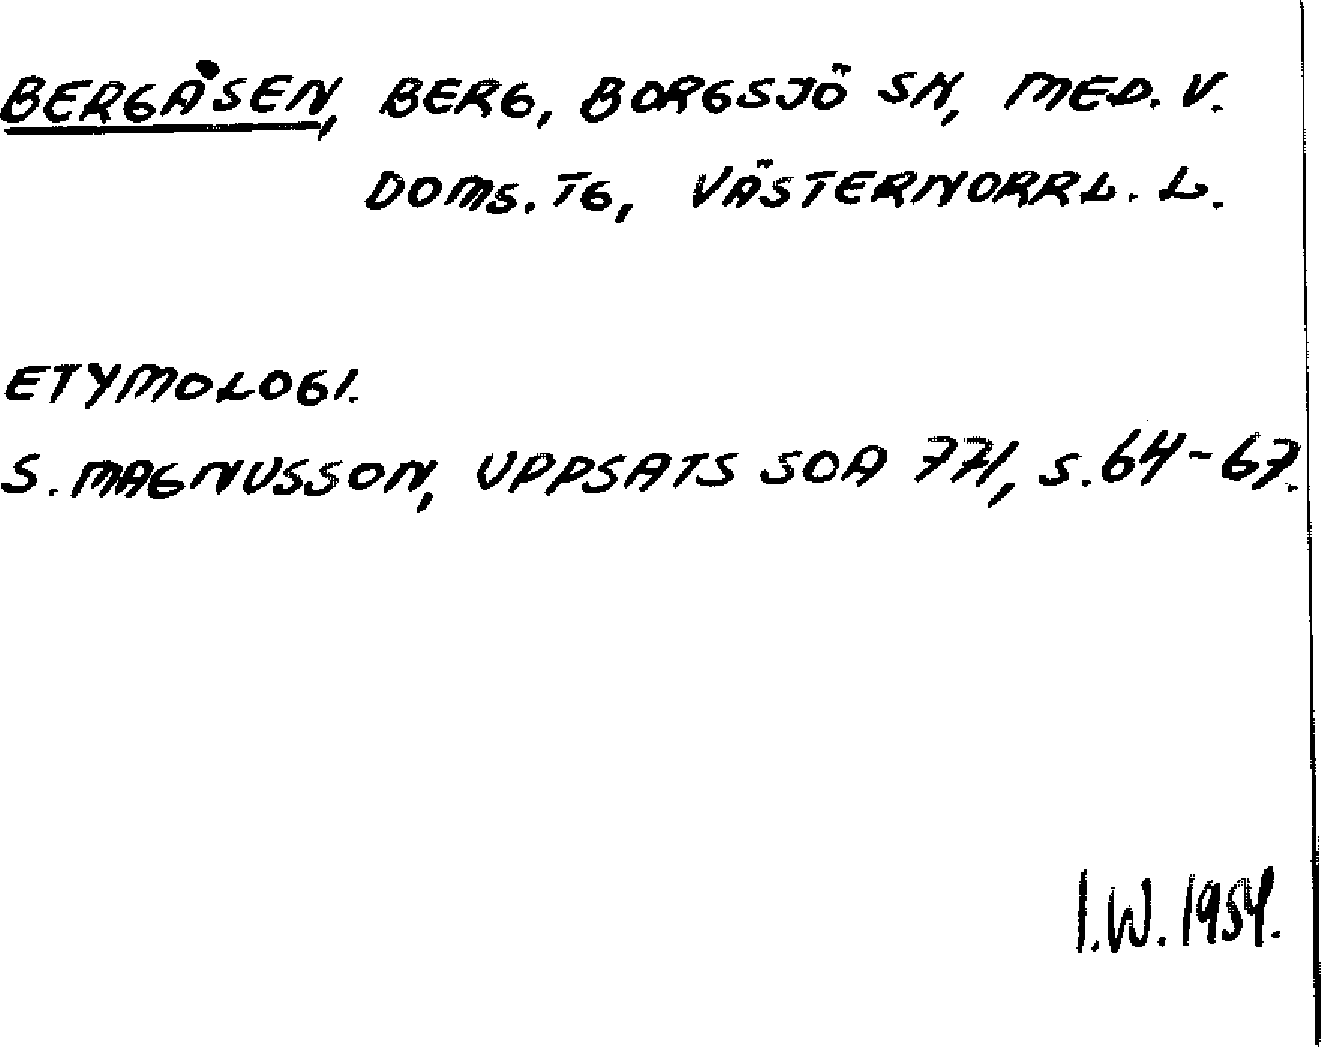 BERGÅSEN, BERG, BORGSJÖ SN, MED. V.
DOMS. TG, VÄSTERNORRL. L.
ETYMOLOGI.
S. MAGNUSSON, UPPSATS SOA 771, S. 64-67.
I.W. 1954.